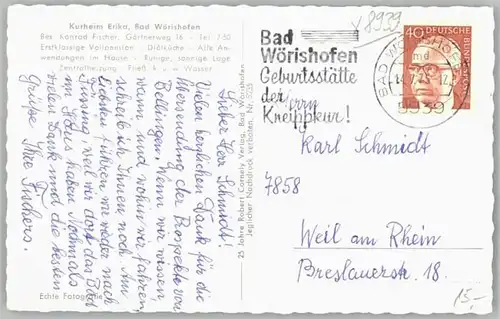 Kurheim Erika, Bad Wörishofen
Bes. Konrad Fischer, Gärtnerweg 16 - Tel. 7 50
Erstklassige Vollpension Diätküche - Alle An-
wendungen im Hause - Ruhige, sonnige Lage
Zentralheizung Fließ. k. u. w. Wasser
Lieber Herr Schmidt!
Vielen herzlichen Dank für die
Übersendung der Prospekte von
Bellingen. Wenn wir wissen
wann und wohin wir fahren,
schreib ich Ihnen noch. Am
liebsten führen wir wieder nach
Füssing, weil wir dort das Bad
im Haus haben. Nochmals
vielen Dank und die besten
Grüße Ihre Fischers.
Echte Fotografie
25 Jahre Robert Cornely Verlag, Bad Wörishofen
Jeglicher Nachdruck verboten. Nr.
Bad
Wörishofen
Geburtsstätte
der
Kneippkur!
BAD WÖRISHOFEN
8939
40
DEUTSCHE BUNDESPOST
y 8939
Herrn
Karl Schmidt
7858
Weil am Rhein
Breslauerstr. 18.
15,-